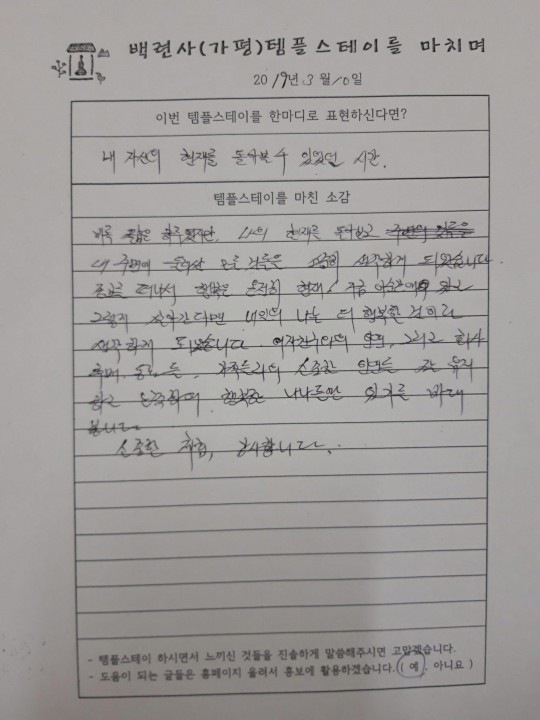 백련사(가평)템플스테이를 마치며
2019년 3월 10일
이번 템플스테이를 한마디로 표현하신다면?
내 자신의 현재를 돌아볼 수 있었던 시간.
템플스테이를 마친 소감
비록 짧은 하루였지만, 나의 현재를 돌아보고
내 주변에 모든 것들을 생각하게 되었습니다
종교를 떠나서 행복은 온전히 현재, 지금 이순간에
그렇게 살아간다면 내일의 나는 더 행복할 것이라
생각하게 되었습니다. 여자친구와의 인연, 그리고 회사
동료들, 가족들과의 소중한 인연들을 잘 유지
하고 나날들만 있기를 바래
봅니다
소중한 체험, 감사합니다..
- 템플스테이 하시면서 느끼신 것들을 진솔하게 말씀해주시면 고맙겠습니다.
- 도움이 되는 글들은 홈페이지 올려서 홍보에 활용하겠습니다.( 예, 아니요 )